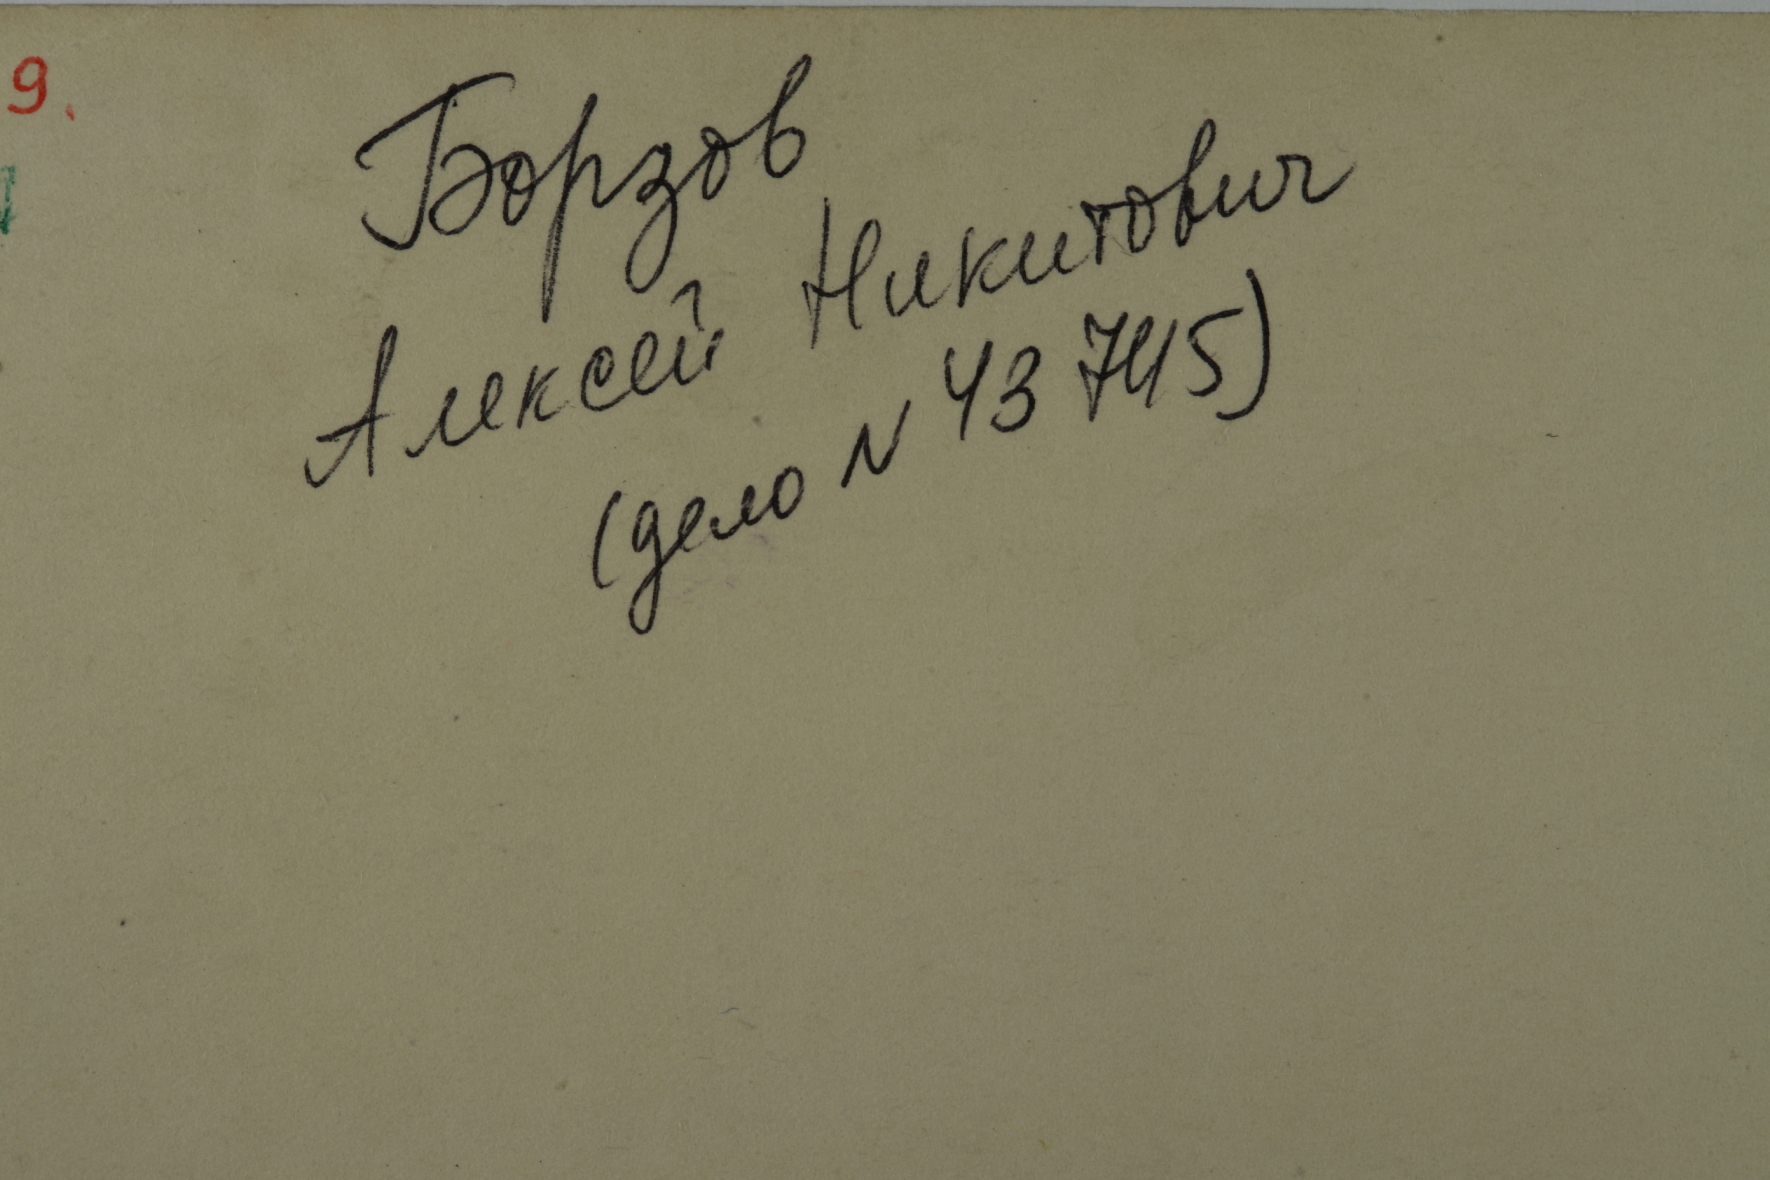 9.
Борзов
Алексей Никитович
(дело N 43745)